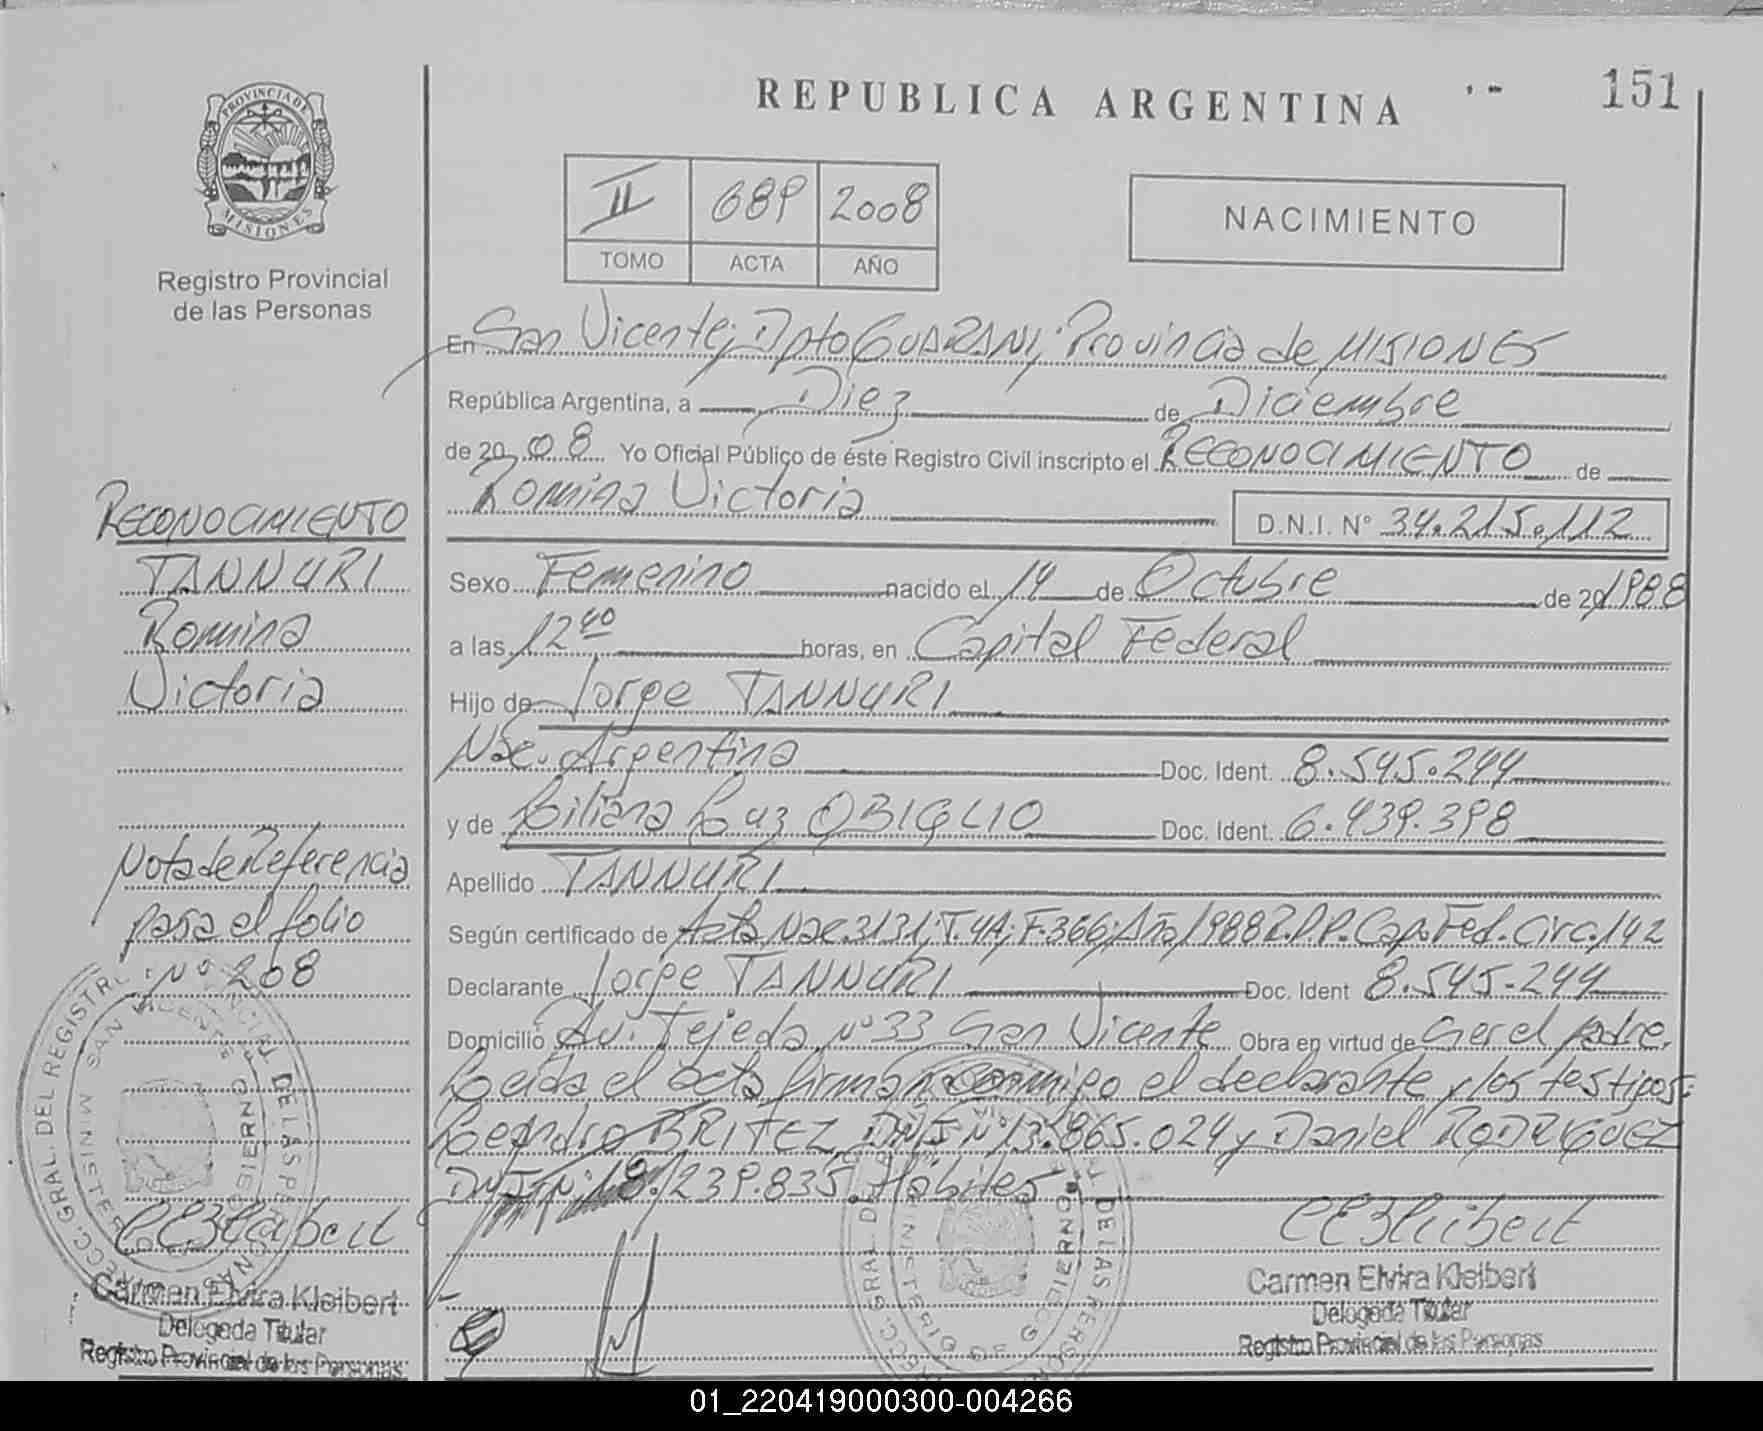 REPUBLICA ARGENTINA
151
PROVINCIA DE
MISIONES
Registro Provincial
de las Personas
II 689 2008
TOMO ACTA AÑO
NACIMIENTO
En San Vicente; Dpto GUARANI; Provincia de MISIONES
República Argentina, a Diez de Diciembre
de 20 08 Yo Oficial Público de éste Registro Civil inscripto el RECONOCIMIENTO de
Romina Victoria D.N.I. Nº 34.215.112
Sexo Femenino nacido el 14 de Octubre de 20/1988
a las 12 40 horas, en Capital Federal
Hijo de Jorge TANNURI
Nac. Argentina Doc. Ident. 8.545.244
y de Liliana Luz OBIGLIO Doc. Ident. 6.439.398
Apellido TANNURI
Según certificado de Acta Nac. 3131; T. 4A; F. 366; Año 1988 R.P.P. Cap. Fed. Circ. 142
Declarante Jorge TANNURI Doc. Ident 8.545.244
Domicilio Av. Tejeda Nº 33 San Vicente Obra en virtud de Ser el padre.
Leida el acta firman conmigo el declarante y los testigos:
Leandro BRITEZ, DNI Nº 13.865.024 y Daniel RODRIGUEZ
DNI Nº 18.239.835. Hábiles
RECONOCIMIENTO
TANNURI
Romina
Victoria
Nota de Referencia
pasa el folio
Nº 208
Carmen Elvira Kleibert
Delegada Titular
Registro Provincial de las Personas
Carmen Elvira Kleibert
Delegada Titular
Registro Provincial de las Personas
01_220419000300-004266